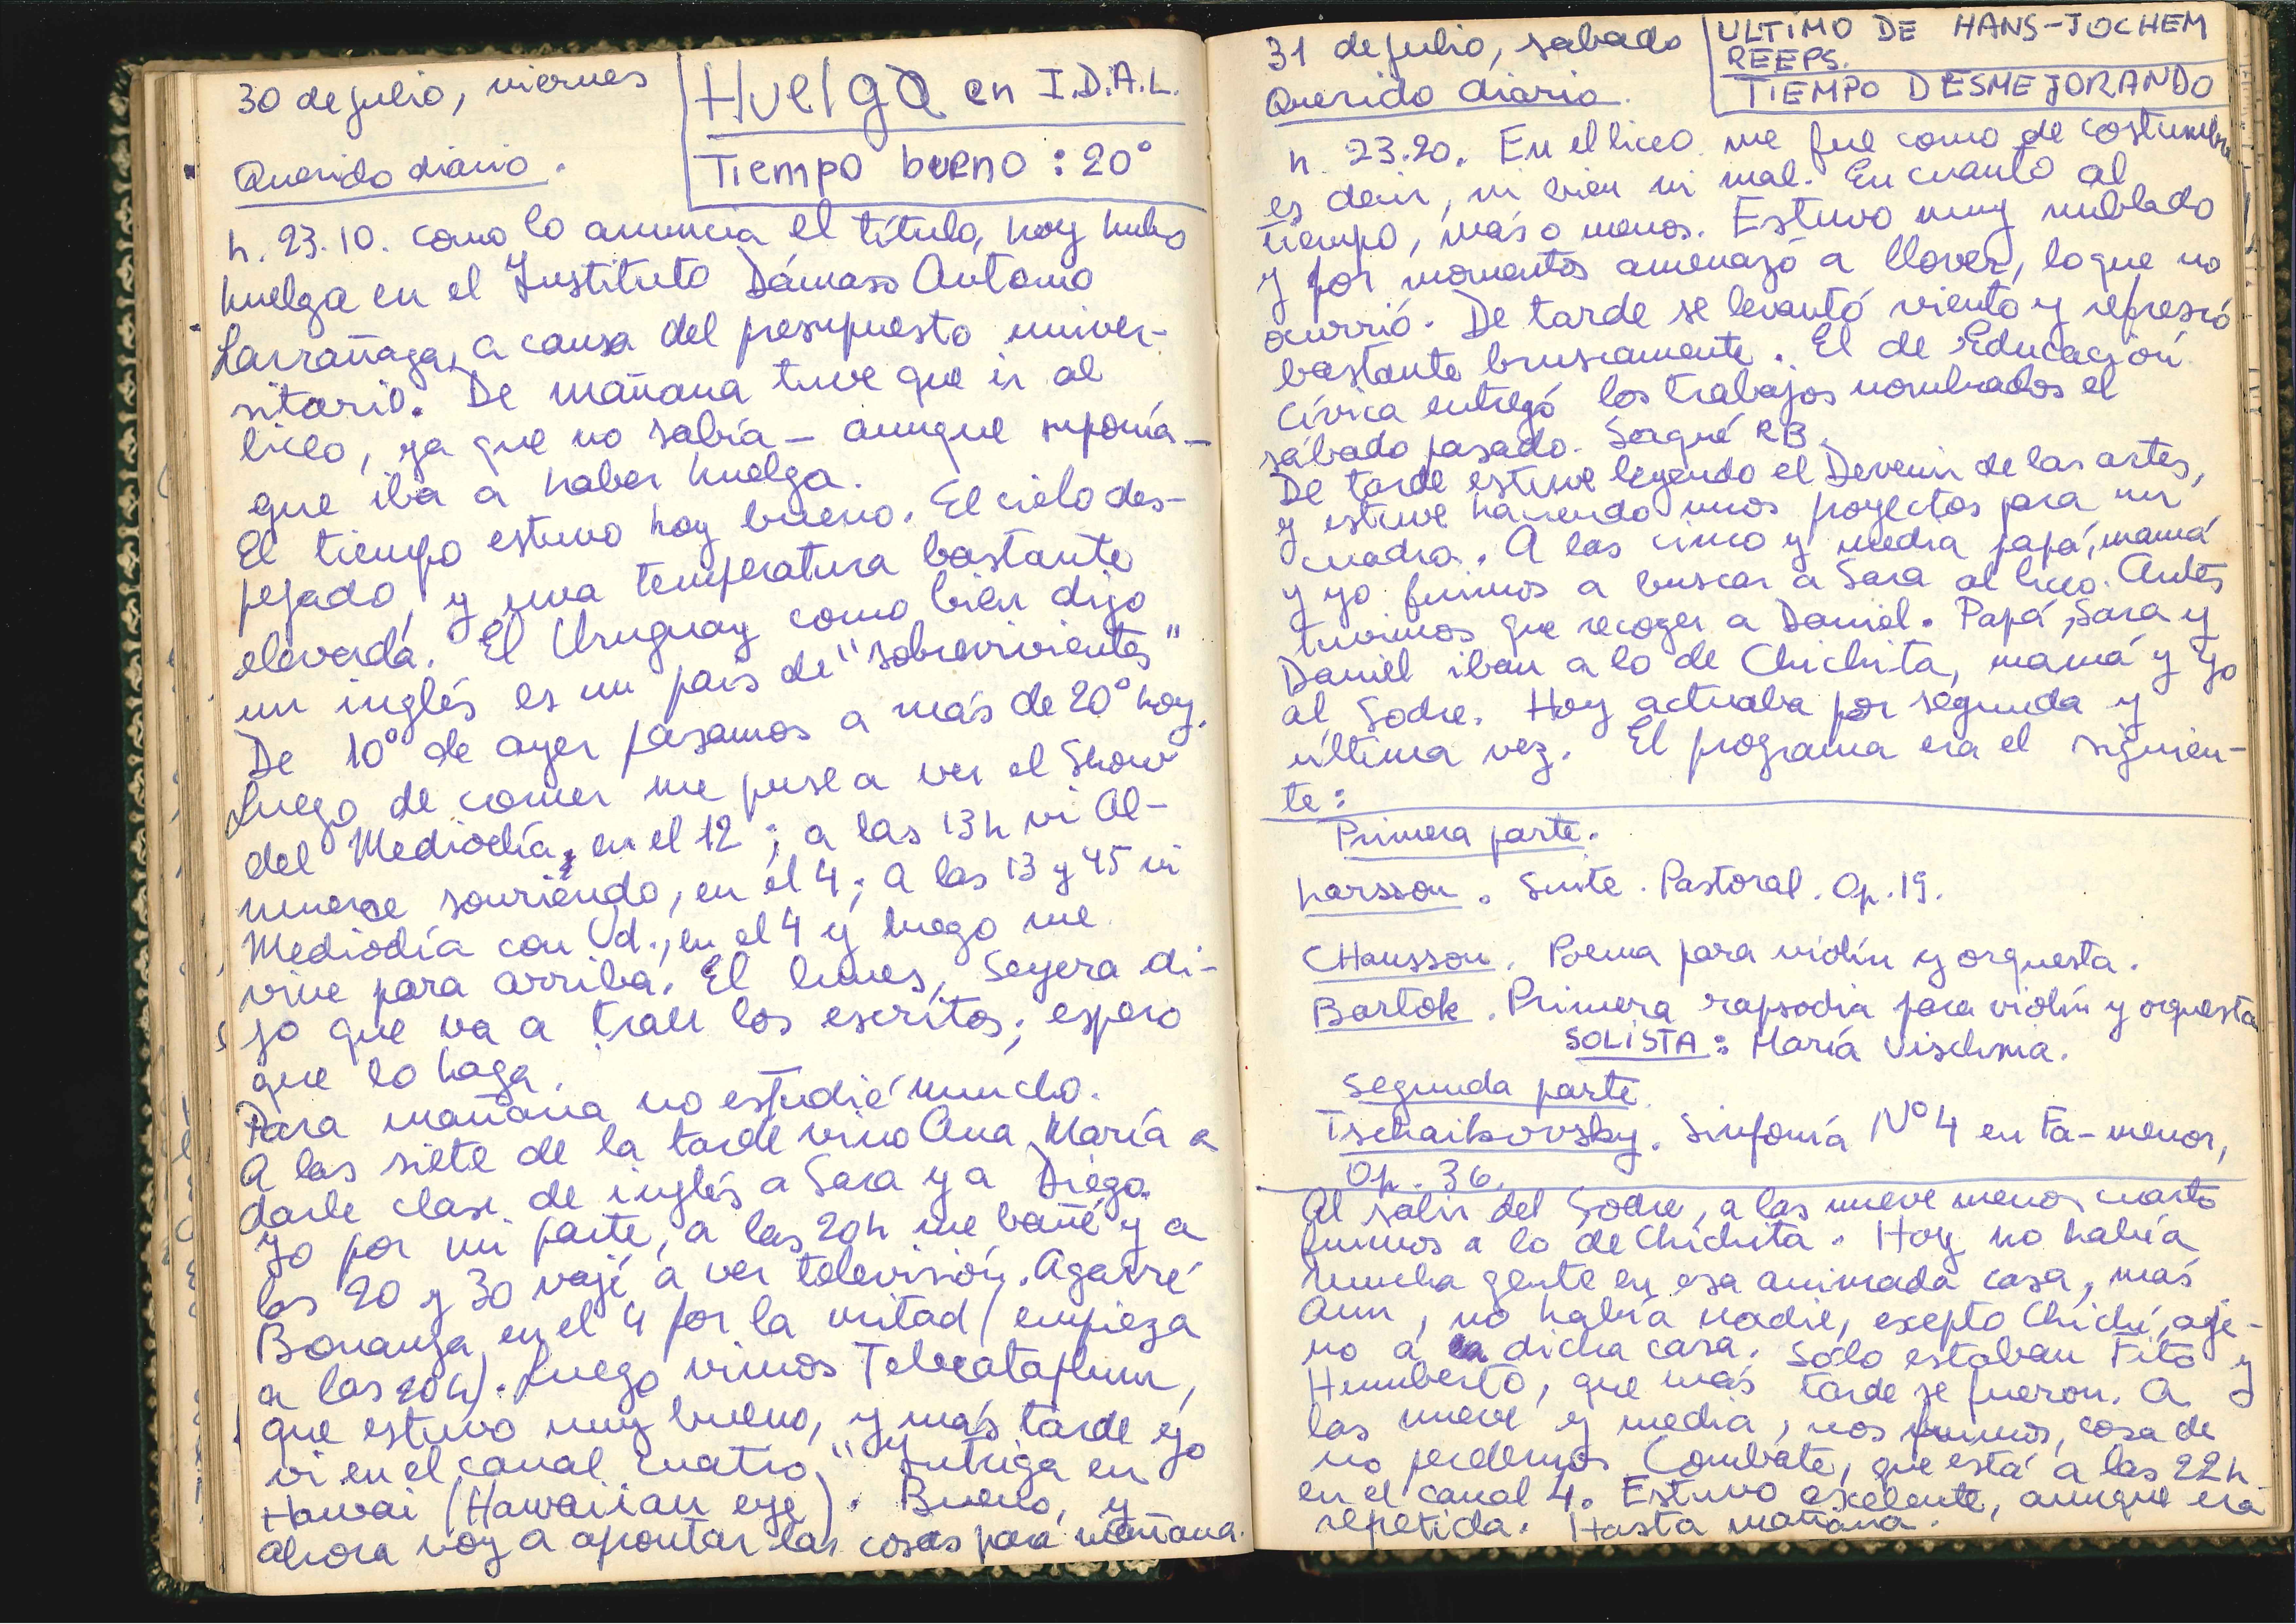 30 de julio, viernes
Huelga en I.D.A.L.
Tiempo bueno : 20°
Querido diario.
h. 23.10. Como lo anuncia el título, hoy hubo
huelga en el Instituto Dámaso Antonio
Larrañaga, a causa del presupuesto univer-
sitario. De mañana tuve que ir al
liceo, ya que no sabía - aunque suponía -
que iba a haber huelga.
El tiempo estuvo hoy bueno. El cielo des-
pejado, y una temperatura bastante
elevada. El Uruguay como bien dijo
un inglés es un país de "sobrevivientes"
De 10° de ayer pasamos a más de 20° hoy.
Luego de comer me puse a ver el Show
del Mediodía, en el 12 ; a las 13h vi Al-
muerce sonriendo, en el 4; a las 13 y 45 vi
Mediodía con Ud., en el 4 y luego me
vine para arriba. El lunes, Seyera di-
jo que va a traer los escritos; espero
que lo haga.
Para mañana no estudié mucho.
A las siete de la tarde vino Ana María a
darle clase de inglés a Sara y a Diego.
Yo por mi parte, a las 20h me bañé y a
las 20 y 30 vajé a ver televisión. Agarré
Bonanza en el 4 por la mitad (empieza
a las 20h). Luego vimos Telecataplum,
que estuvo muy bueno, y más tarde yo
vi en el canal cuatro, "Intriga en
Hawai (Hawaiian eye). Bueno, y
ahora voy a aprontar las cosas para mañana.
31 de julio, sabado
ULTIMO DE HANS-JOCHEM
REEPS.
TIEMPO DESMEJORANDO
Querido diario.
h. 23.20. En el liceo me fue como de costumbre
es decir, ni bien ni mal. En cuanto al
tiempo, más o menos. Estuvo muy nublado
y por momentos amenazó a llover, lo que no
ocurrió. De tarde se levantó viento y refrescó
bastante bruscamente. El de Educación
Cívica entregó los trabajos nombrados el
sábado pasado. Saqué RB.
De tarde estuve leyendo el Devenir de las artes,
y estuve haciendo unos proyectos para un
cuadro. A las cinco y media papá, mamá
y yo fuimos a buscar a Sara al liceo. Antes
tuvimos que recoger a Daniel. Papá, Sara y
Daniel iban a lo de Chichita, mamá y yo
al Sodre. Hoy actuaba por segunda y
última vez. El programa era el siguien-
te:
Primera parte.
Larsson. Suite. Pastoral. Op. 19.
CHausson. Poema para violín y orquesta.
Bartok. Primera rapsodia para violín y orquesta
SOLISTA: María Vischnia.
Segunda parte
Tschaikovvsky. Sinfonía Nº 4 en Fa-menor,
Op. 36.
Al salir del Sodre, a las nueve menos cuarto
fuimos a lo de Chichita. Hoy no había
mucha gente en esa animada casa, más
aun, no había nadie, exepto Chichí, aje-
no a dicha casa. Sólo estaban Fito y
Humberto, que más tarde se fueron. A
las nueve y media, nos fuimos, cosa de
no perdernos Combate, que está a las 22h
en el canal 4. Estuvo exelente, aunque era
repetida. Hasta mañana.